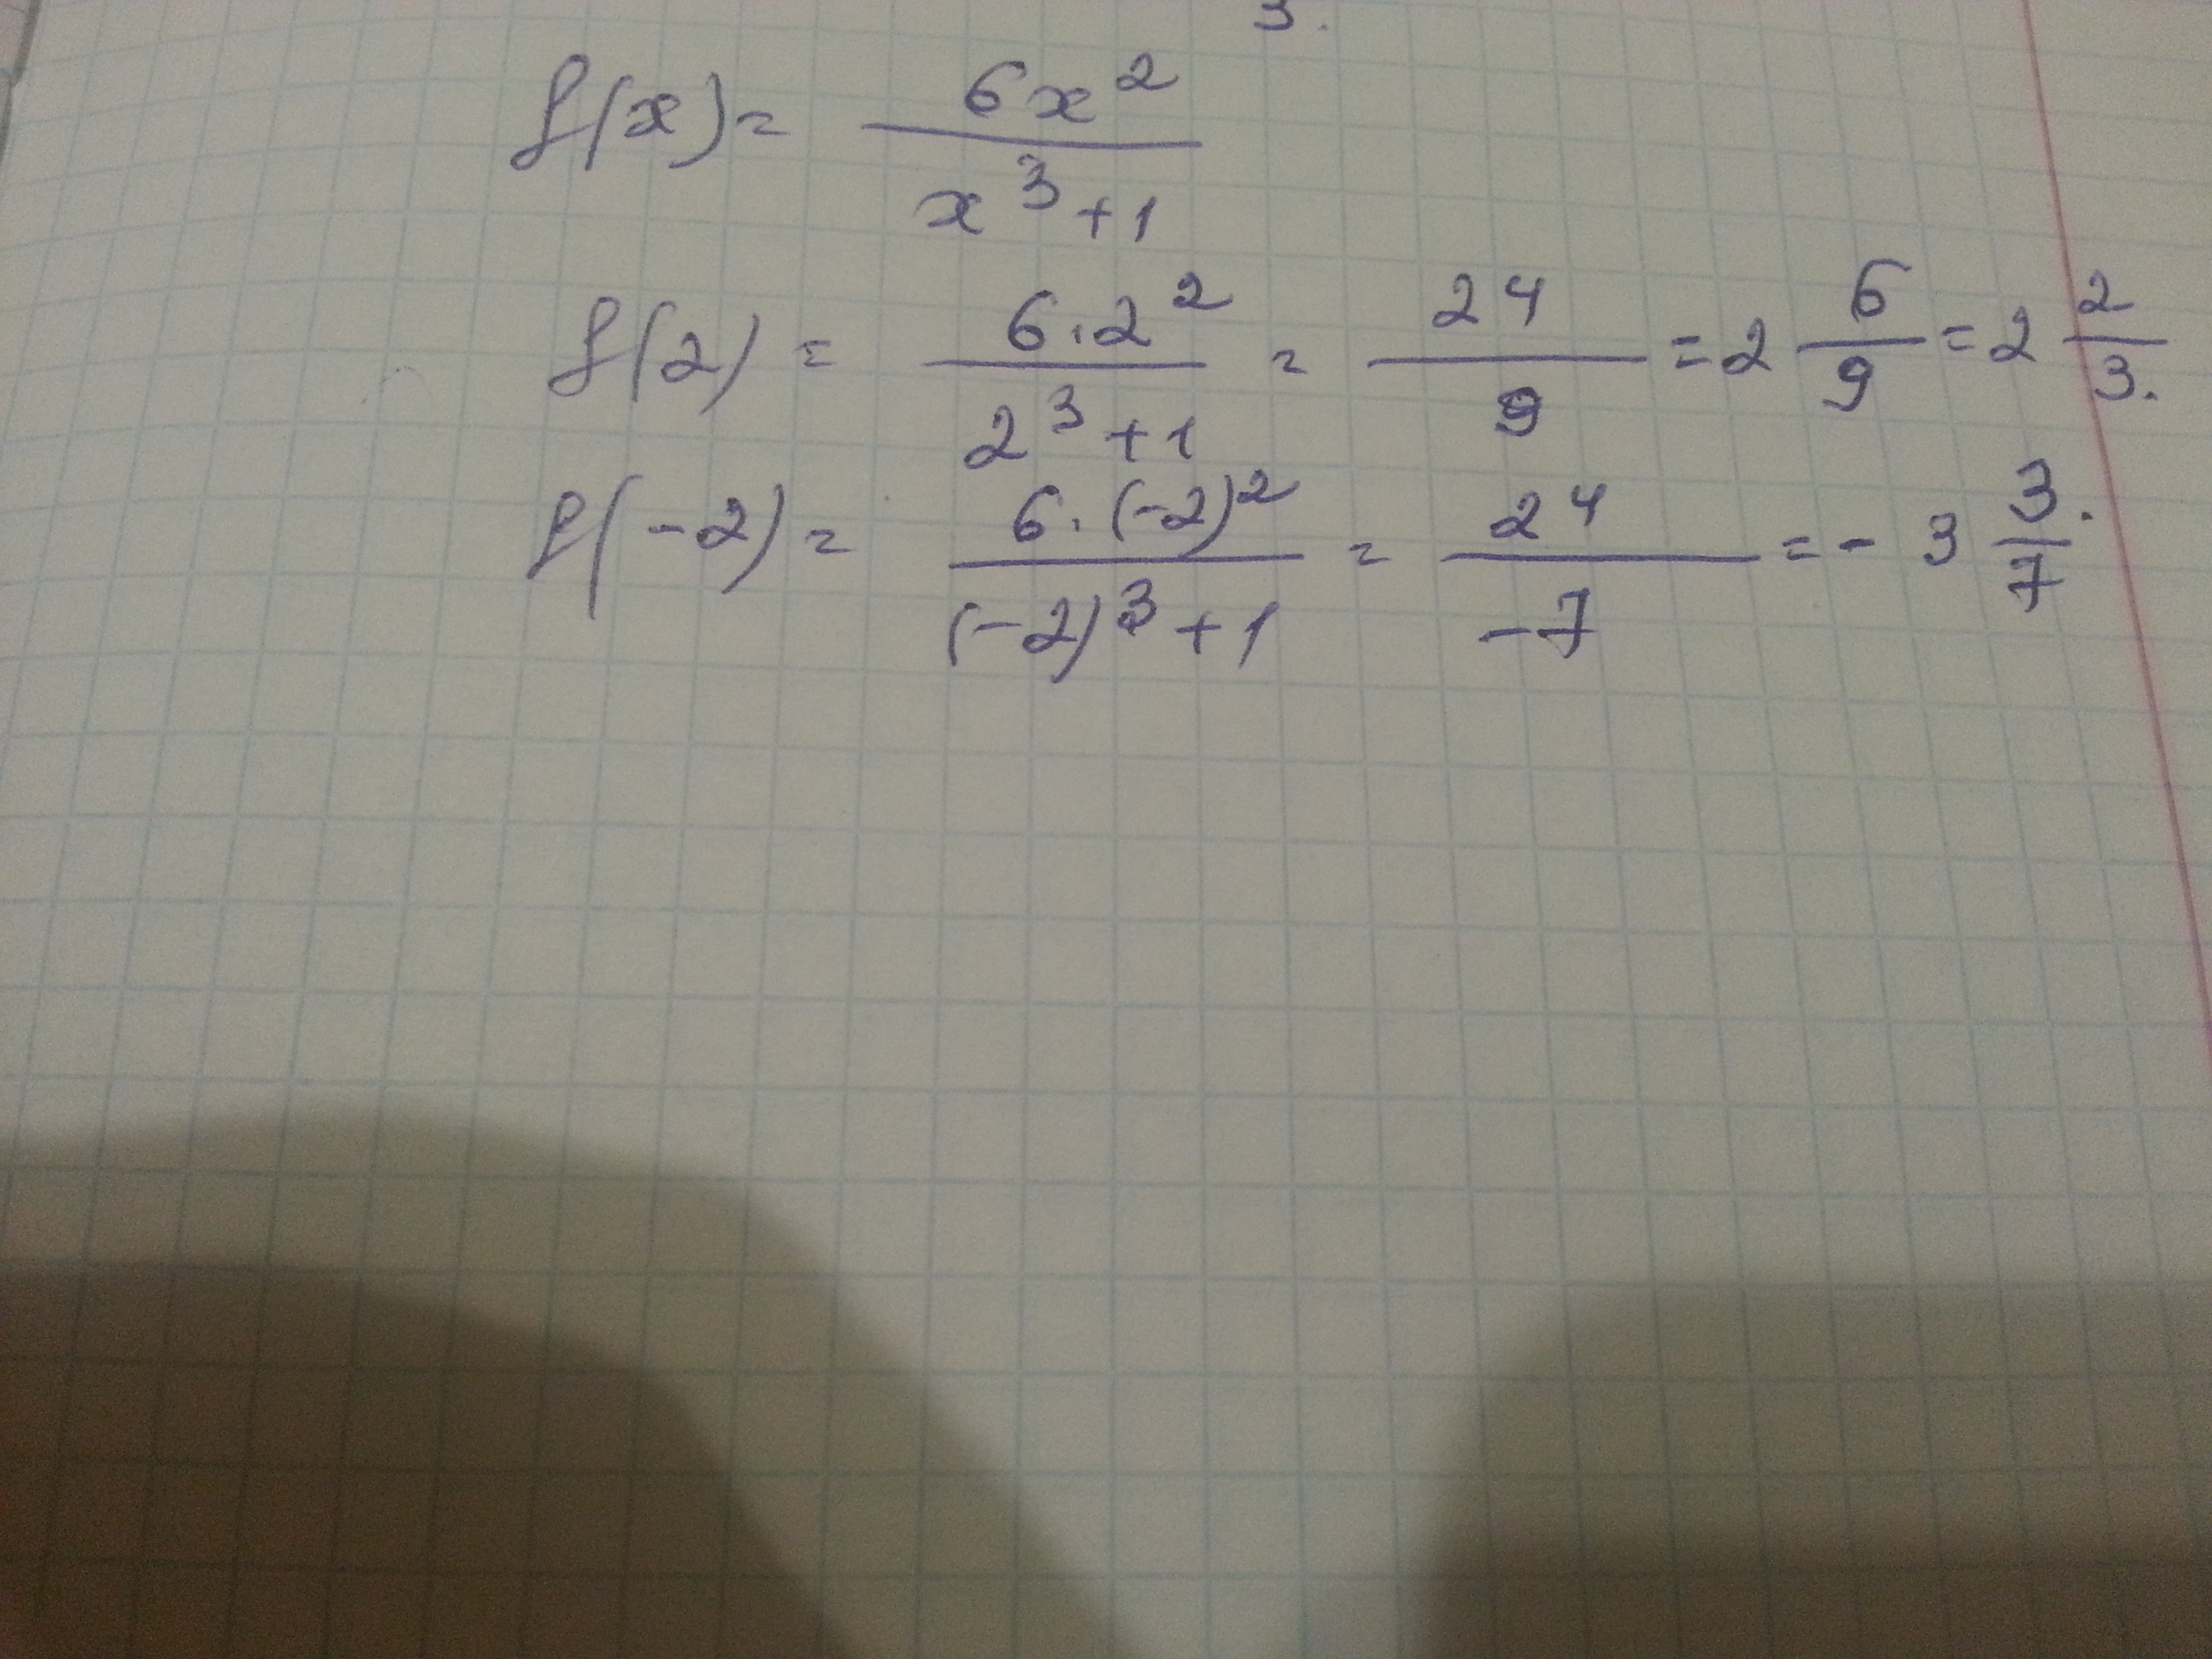 3.
f(x) = 6x² / x³+1
f(2) = 6·2² / 2³+1 = 24 / 9 = 2 6/9 = 2 2/3.
f(-2) = 6·(-2)² / (-2)³+1 = 24 / -7 = - 3 3/7.